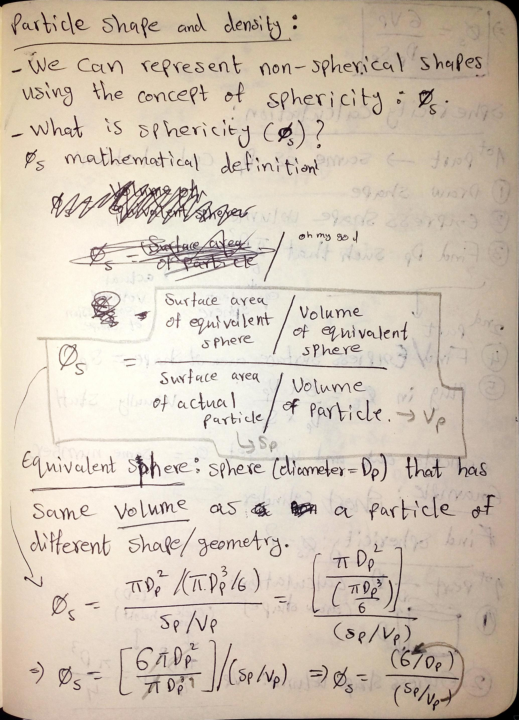 Particle shape and density:
- We can represent non-spherical shapes
using the concept of sphericity: Øs.
- What is sphericity (Øs)?
Øs mathematical definition
Øs = (Surface area / oh my god
of particle
Surface area / Volume
of equivalent of equivalent
sphere sphere
Øs =
Surface area / Volume
of actual of particle. → Vp
particle
↳ Sp
Equivalent sphere: sphere (diameter = Dp) that has
same volume as a particle of
different shape/geometry.
Øs = πDp² / (πDp³/6) / (Sp/Vp) = [πDp² / (πDp³/6)] / (Sp/Vp)
⇒ Øs = [6πDp² / πDp³] / (Sp/Vp) ⇒ Øs = (6/Dp) / (Sp/Vp)